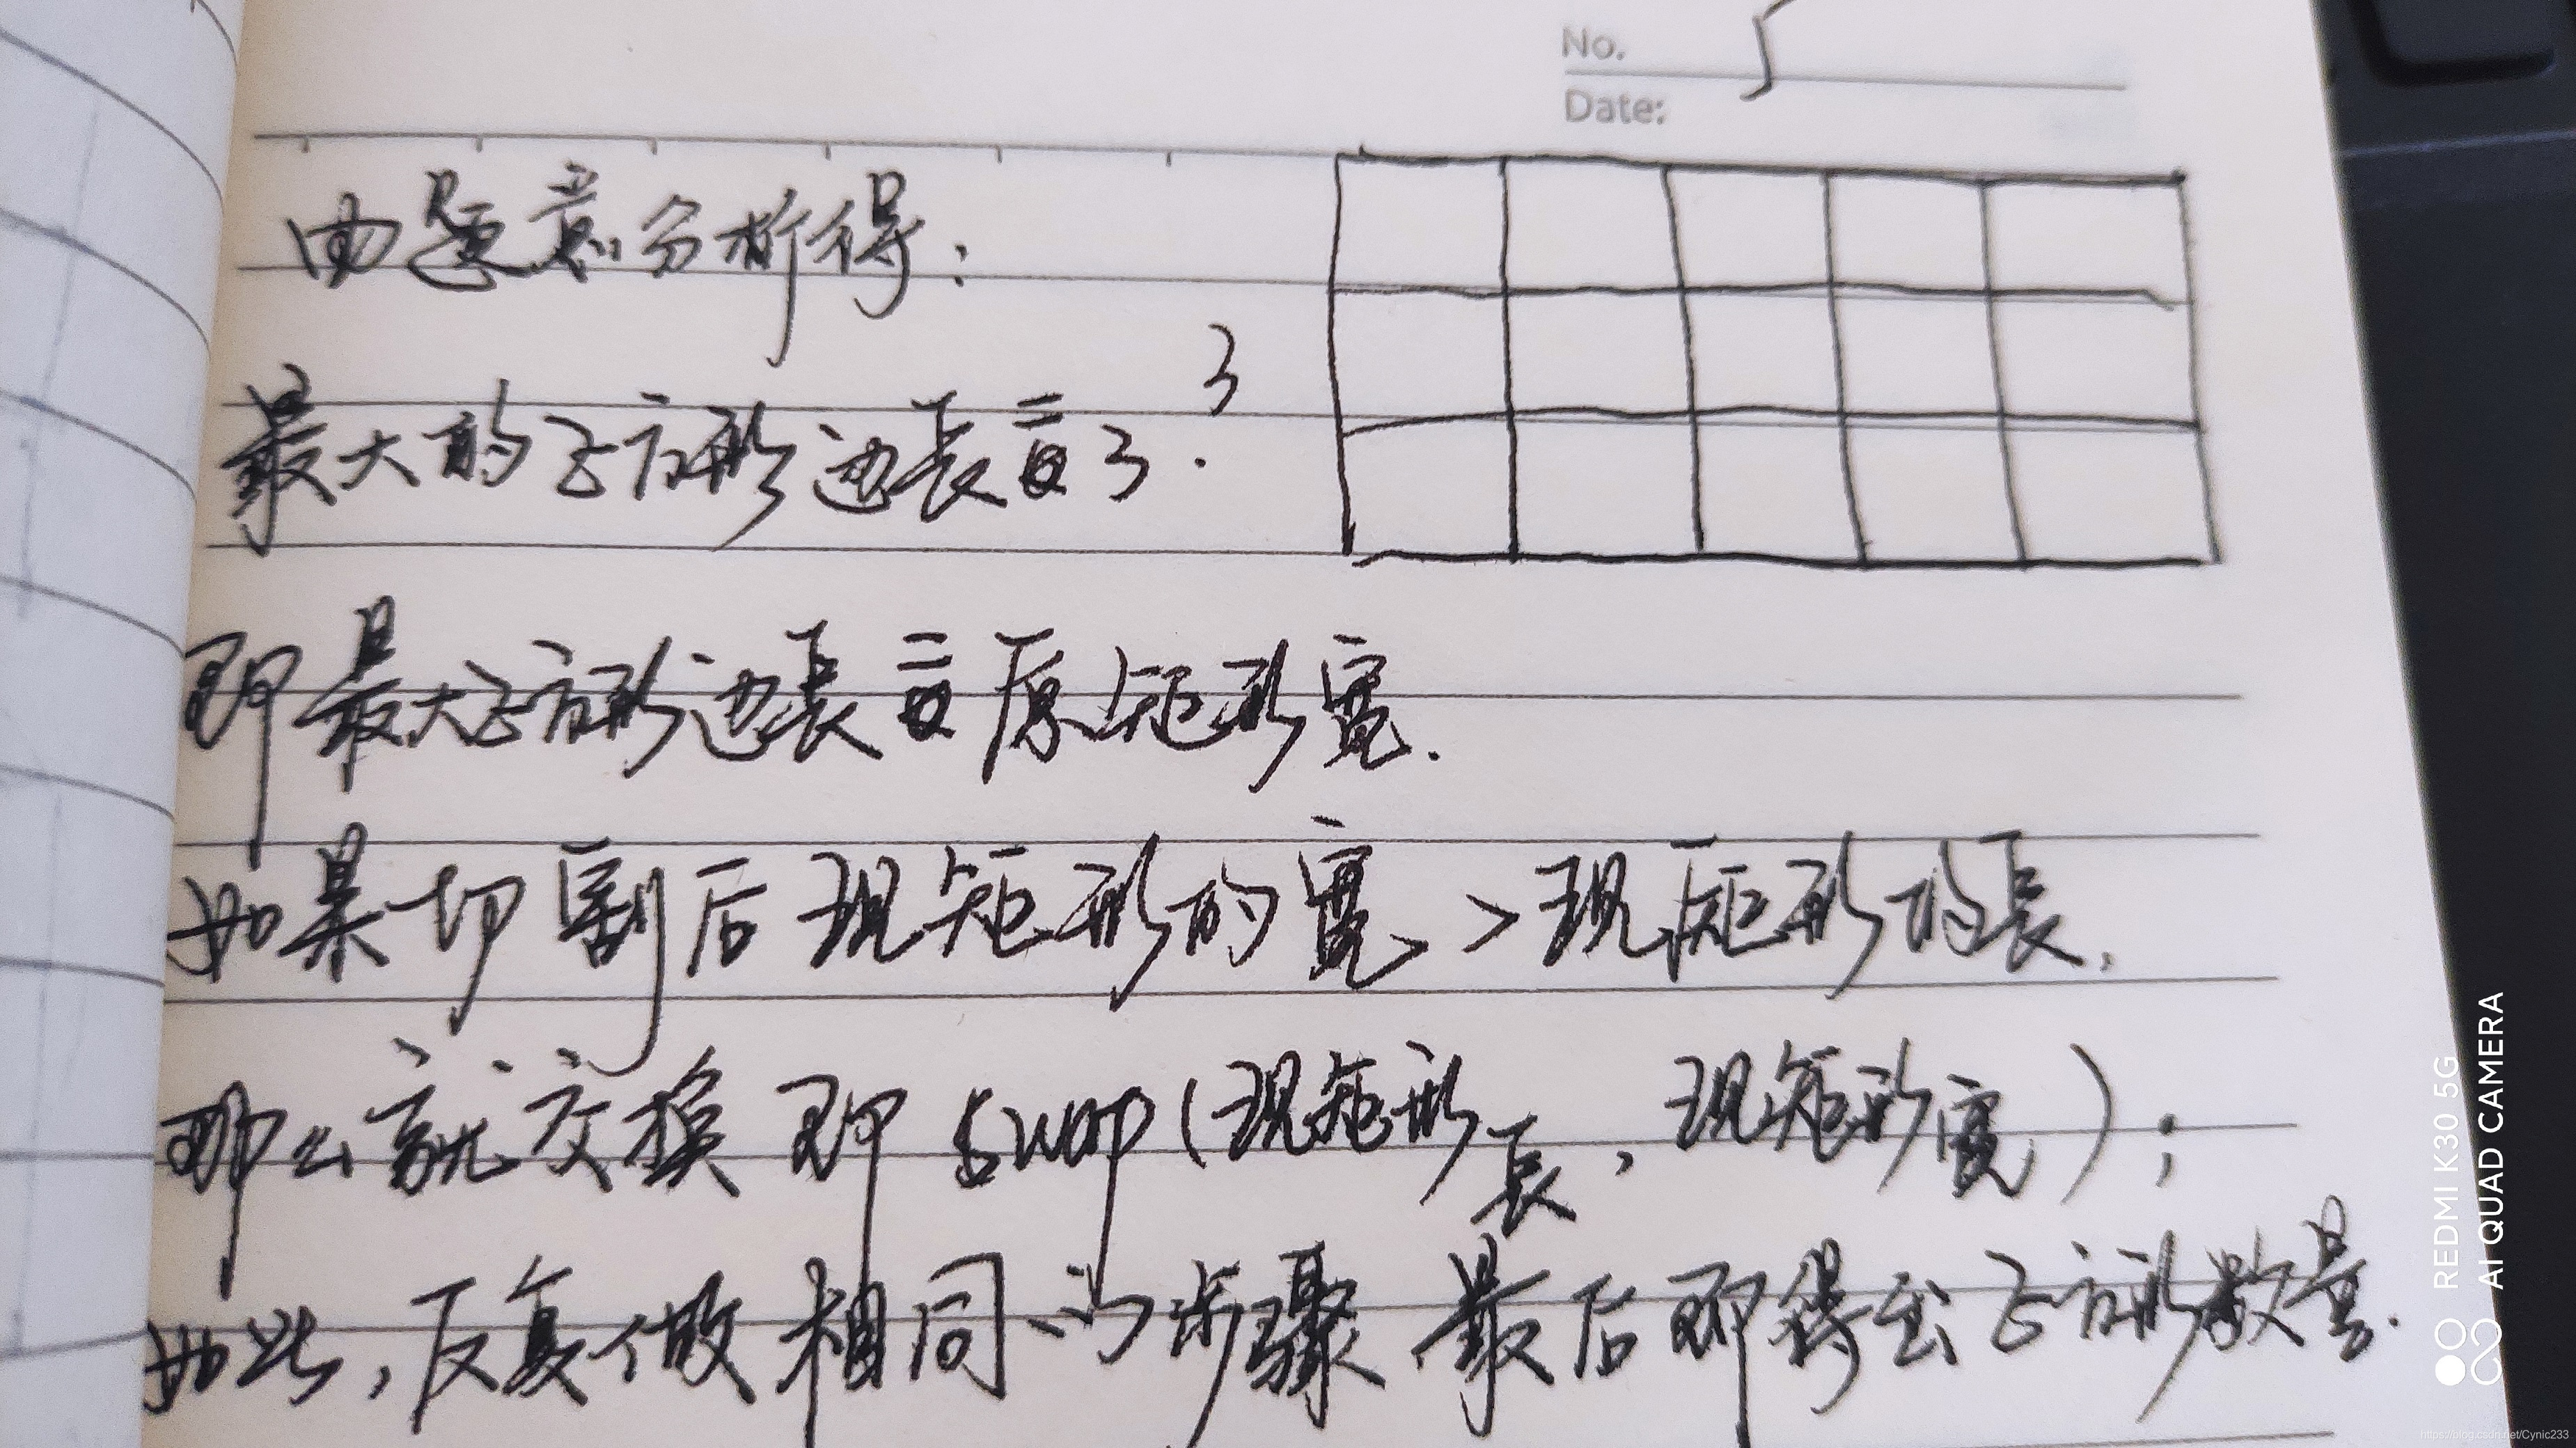 No. 5
Date:
由题意分析得:
3
最大的正方形边长是3.
即最大正方形边长是原矩形宽.
如果切割后现矩形的宽 > 现矩形的长,
那么就交换 即 swap(现矩形长, 现矩形宽);
如此, 反复做相同的步骤 最后即得出正方形数量.
REDMI K30 5G
AI QUAD CAMERA
https://blog.csdn.net/Cynic233